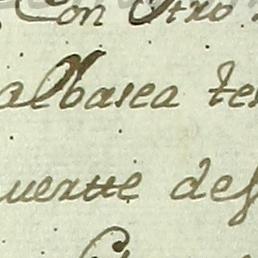 Con Otro
albasea tes
uertte def